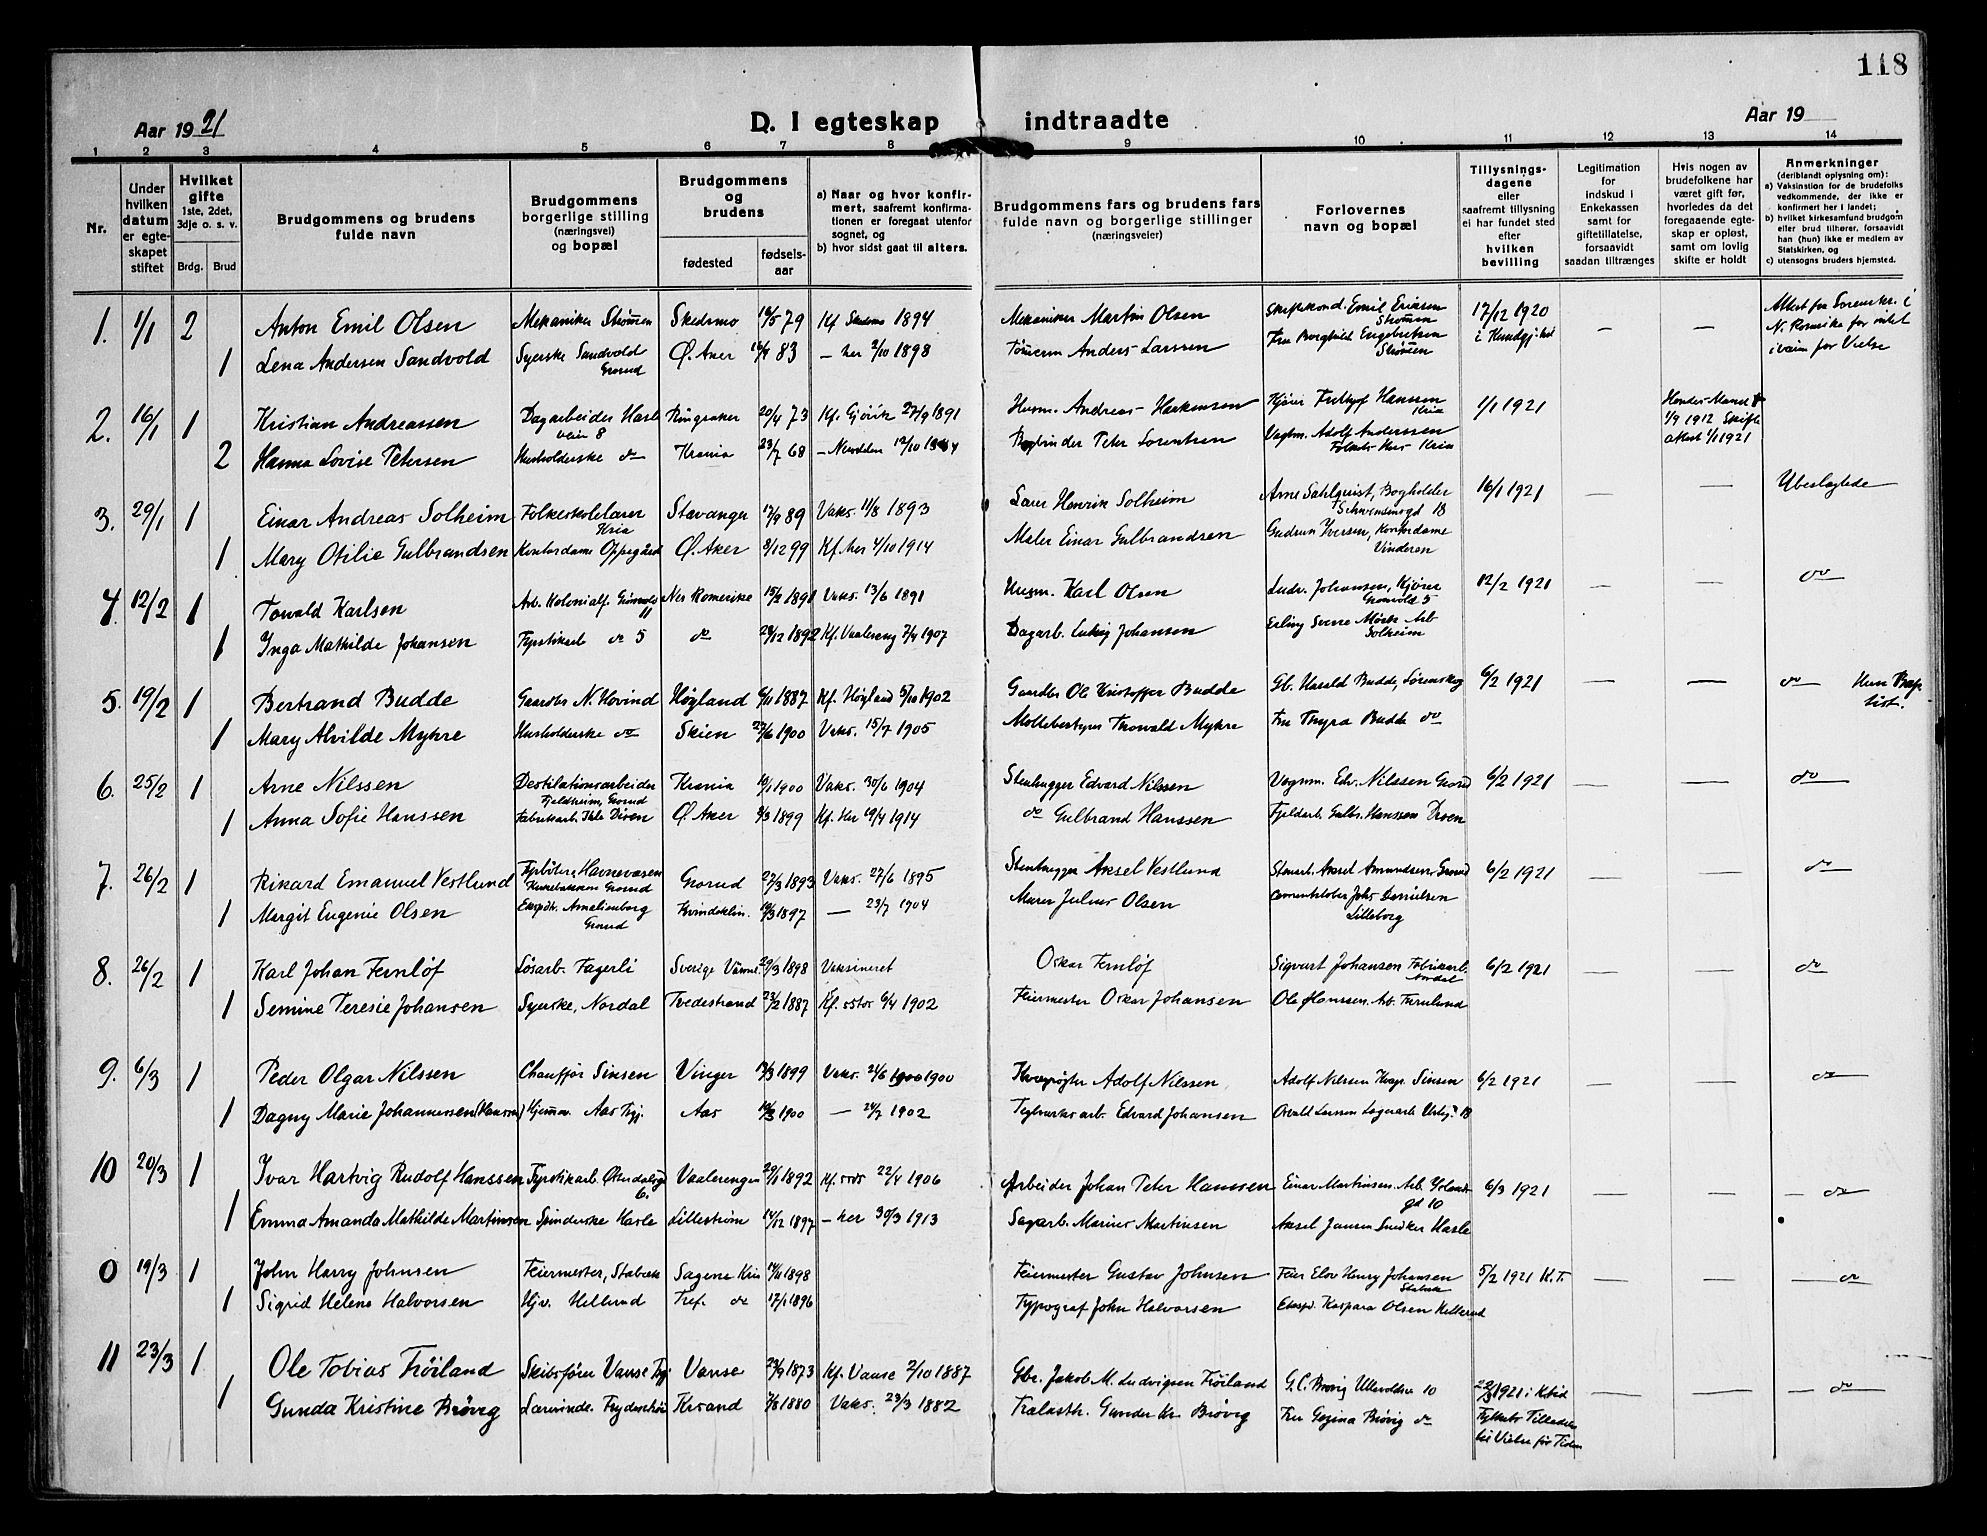 118
Aar 1921
D. I egteskap indtraadte
Aar 19
1 2 3 4 5 6 7 8 9 10 11 12 13 14
Nr.
Under hvilken datum er egteskapet stiftet
Hvilket gifte 1ste, 2det, 3dje o. s. v.
Brdg. Brud
Brudgommens og brudens fulde navn
Brudgommens borgerlige stilling (næringsvei) og bopæl
Brudgommens og brudens
fødested
fødselsaar
a) Naar og hvor konfirmert, saafremt konfirmationen er foregaat utenfor sognet, og
b) hvor sidst gaat til alters.
Brudgommens fars og brudens fars fulde navn og borgerlige stillinger (næringsveier)
Forlovernes navn og bopæl
Tillysningsdagene eller saafremt tillysning ei har fundet sted efter hvilken bevilling
Legitimation for indskud i Enkekassen samt for giftetillatelse, forsaavidt saadan tiltrænges
Hvis nogen av brudefolkene har været gift før, hvorledes da det foregaaende egteskap er opløst, samt om lovlig skifte er holdt
Anmerkninger (deriblandt oplysning om):
a) Vaksination for de brudefolks vedkommende, der ikke er konfirmert her i landet;
b) hvilket kirkesamfund brudgom eller brud tilhører, forsaavidt han (hun) ikke er medlem av Statskirken, og
c) utensogns bruders hjemsted.
1. 1/1 2 Anton Emil Olsen Mekaniker Strømmen Skedsmo 79 Kf Skedsmo 1894 Mekaniker Martin Olsen Emil Eriksen Strømmen 17/12 1920 — —
1 Lena Andersen Sandvold Syerske Sandvold Grorud Ø. Aker 83 — her 2/10 1898 Anders Larssen Fru Borghild Engebretsen Strømmen
2. 16/1 1 Kristian Andreassen Dagarbeider Hasle veien 8 Ringsaker 20/4 73 Kf. Gjøvik 27/9 1891 Husm. Andreas Kjører Fridtjof Hansen Kria 1/1 1921 1/9 1912 Skifte attest 1/1 1921
2 Hanna Lovise Petersen Husholderske do Krania 23/7 68 Peter Lorentsen Vagtm. Adolf Anderssen Folkets Hus Kria
3. 29/1 1 Einar Andreas Solheim Folkeskolelærer Kria Stavanger 17/9 89 Vaks. 11/8 1893 Lærer Henrik Solheim Arne Sahlquist, Bogholder Schwensensgd 18 16/1 1921 — — Ubeslegtede
1 Mary Otilie Gulbrandsen Kontordame Oppegård Ø. Aker 8/12 99 Kf. her 4/10 1914 Maler Einar Gulbrandsen Gudrun Iversen, Kontordame Vinderen
4. 12/2 1 Torvald Karlsen Arb. Kolonialf. Grønvold 11 Nes Romerike 15/2 1891 Vaks. 13/6 1891 Husm. Karl Olsen Ludv. Johansen, Kjører Grønvold 5 12/2 1921 — — do
1 Inga Mathilde Johansen Fyrstikarb do 5 do 29/12 1892 Kf. Vaalereng 7/4 1907 Dagarb. Ludvig Johansen Erling Sverre Mörk Arb Solheim
5. 19/2 1 Bertrand Budde Gaardbr N. Hovind Høyland 6/11 1887 Kf. Høyland 5/10 1902 Gaardbr Ole Kristoffer Budde Gb. Harald Budde, Lørenskog 6/2 1921 — — do Hun Baptist.
1 Mary Alvilde Myhre Husholderske do Skien 27/6 1900 Vaks. 15/7 1905 Møllebestyrer Thorvald Myhre Fru Thyra Budde do
6. 25/2 1 Arne Nilssen Destilationsarbeider Fjeldheim, Grorud Krania 1900 Vaks. 30/6 1904 Stenhugger Edvard Nilssen Vognm. Edv. Nilssen Grorud 6/2 1921 — — do
1 Anna Sofie Hanssen Fabrikarb. Ø. Aker 1899 Kf. Her 19/4 1914 do Gulbrand Hanssen Fjeldarb. Gulbr. Hanssen
7. 26/2 1 Rikard Emanuel Vestlund Fyrbøter Havnevæsen Grorud Grorud 27/3 1893 Vaks. 27/6 1895 Stenhugger Aksel Vestlund Stenarb. Aksel Amundsen, Grorud 6/2 1921 — — do
1 Margit Eugenie Olsen Ekspdtr. Amalienborg Grorud Kvindeklin. 19/3 1897 — 23/7 1904 Murer Julius Olsen Cementstøber Johs Danielsen Lilleborg
8. 26/2 1 Karl Johan Fernlöf Løsarb. Fagerli Sverige Värml. 29/3 1898 Vaksineret Oskar Fernlöf Sigvart Johansen Fabrikarb. Nordal 6/2 1921 — — do
1 Semine Teresie Johansen Syerske, Nordal Tvedestrand 23/2 1887 Kf. 6/4 1902 Feiermester Oskar Johansen Ole Hanssen Arb. Furulund
9. 6/3 1 Peder Olgar Nilssen Chauffør Sinsen Vinger 1899 Vaks. 21/6 1900 1900 Adolf Nilssen Adolf Nilssen Sinsen 6/2 1921 — — do
1 Dagny Marie Johannessen (Hanssen) Hjemmev. Aas Trgj. Aas 1900 — 24/7 1902 Teglverksarb. Edvard Johansen Osvald Larssen Lagerarb 18
10 20/3 1 Ivar Hartvig Rudolf Hanssen Fyrstikarb. Østerdalsgt 6. Vaalerengen 29/1 1892 22/4 1906 Arbeider Johan Peter Hanssen Einar Martinsen. Arb. gd 10 6/3 1921 — — do
1 Emma Amanda Mathilde Martinsen Spinderske Hasle Lillestrøm 14/12 1897 — her 30/3 1913 Sagarb. Marius Martinsen Aksel Jansen Snedker Hasle
0 19/3 1 John Harry Johnsen Feiermester, Stabæk Sagene Kria 1898 Feiermester Gustav Johnsen Feier Elov Henry Johansen Stabæk 5/2 1921 K.T. — — do
1 Sigrid Helene Halvorsen Hjv. Hellerud Tref. do 17/1 1896 Typograf John Halvorsen Ekspd. Kaspara Olsen Hellerud
11 23/3 1 Ole Tobias Frøiland Skibsfører Vanse Vanse 23/9 1873 Kf. Vanse 2/10 1887 Gbr. Jakob M. Ludvigsen Frøiland G.C. Brøvig Ullevoldsv 10 22/3 1921 — — do
1 Gunda Kristine Brøvig Lærerinde. Krsand 7/8 1880 Vaks. 23/3 1882 Trælasth. Gunder Kr. Brøvig Fru Gezina Brøvig do